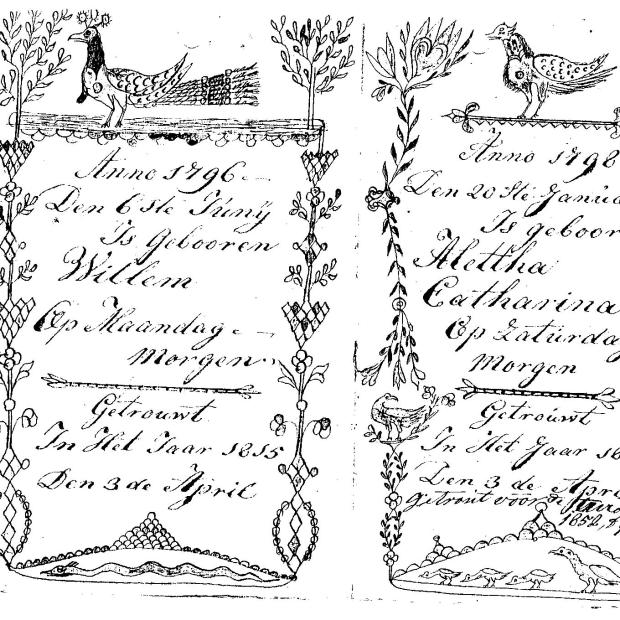 Anno 1796
Den 6 ste Júnÿ
Is Gebooren
Willem
Op Maandag
Morgen
Getrouwt
In Het Jaar 1815
Den 3 de April
Anno 1798
Den 20 Ste Janúa
Is geboor
Alettha
Catharina
Op Zatúrda
Morgen
Getroúwt
In Het Jaar 18
Den 3 de Apr
getrout voor de
1852,